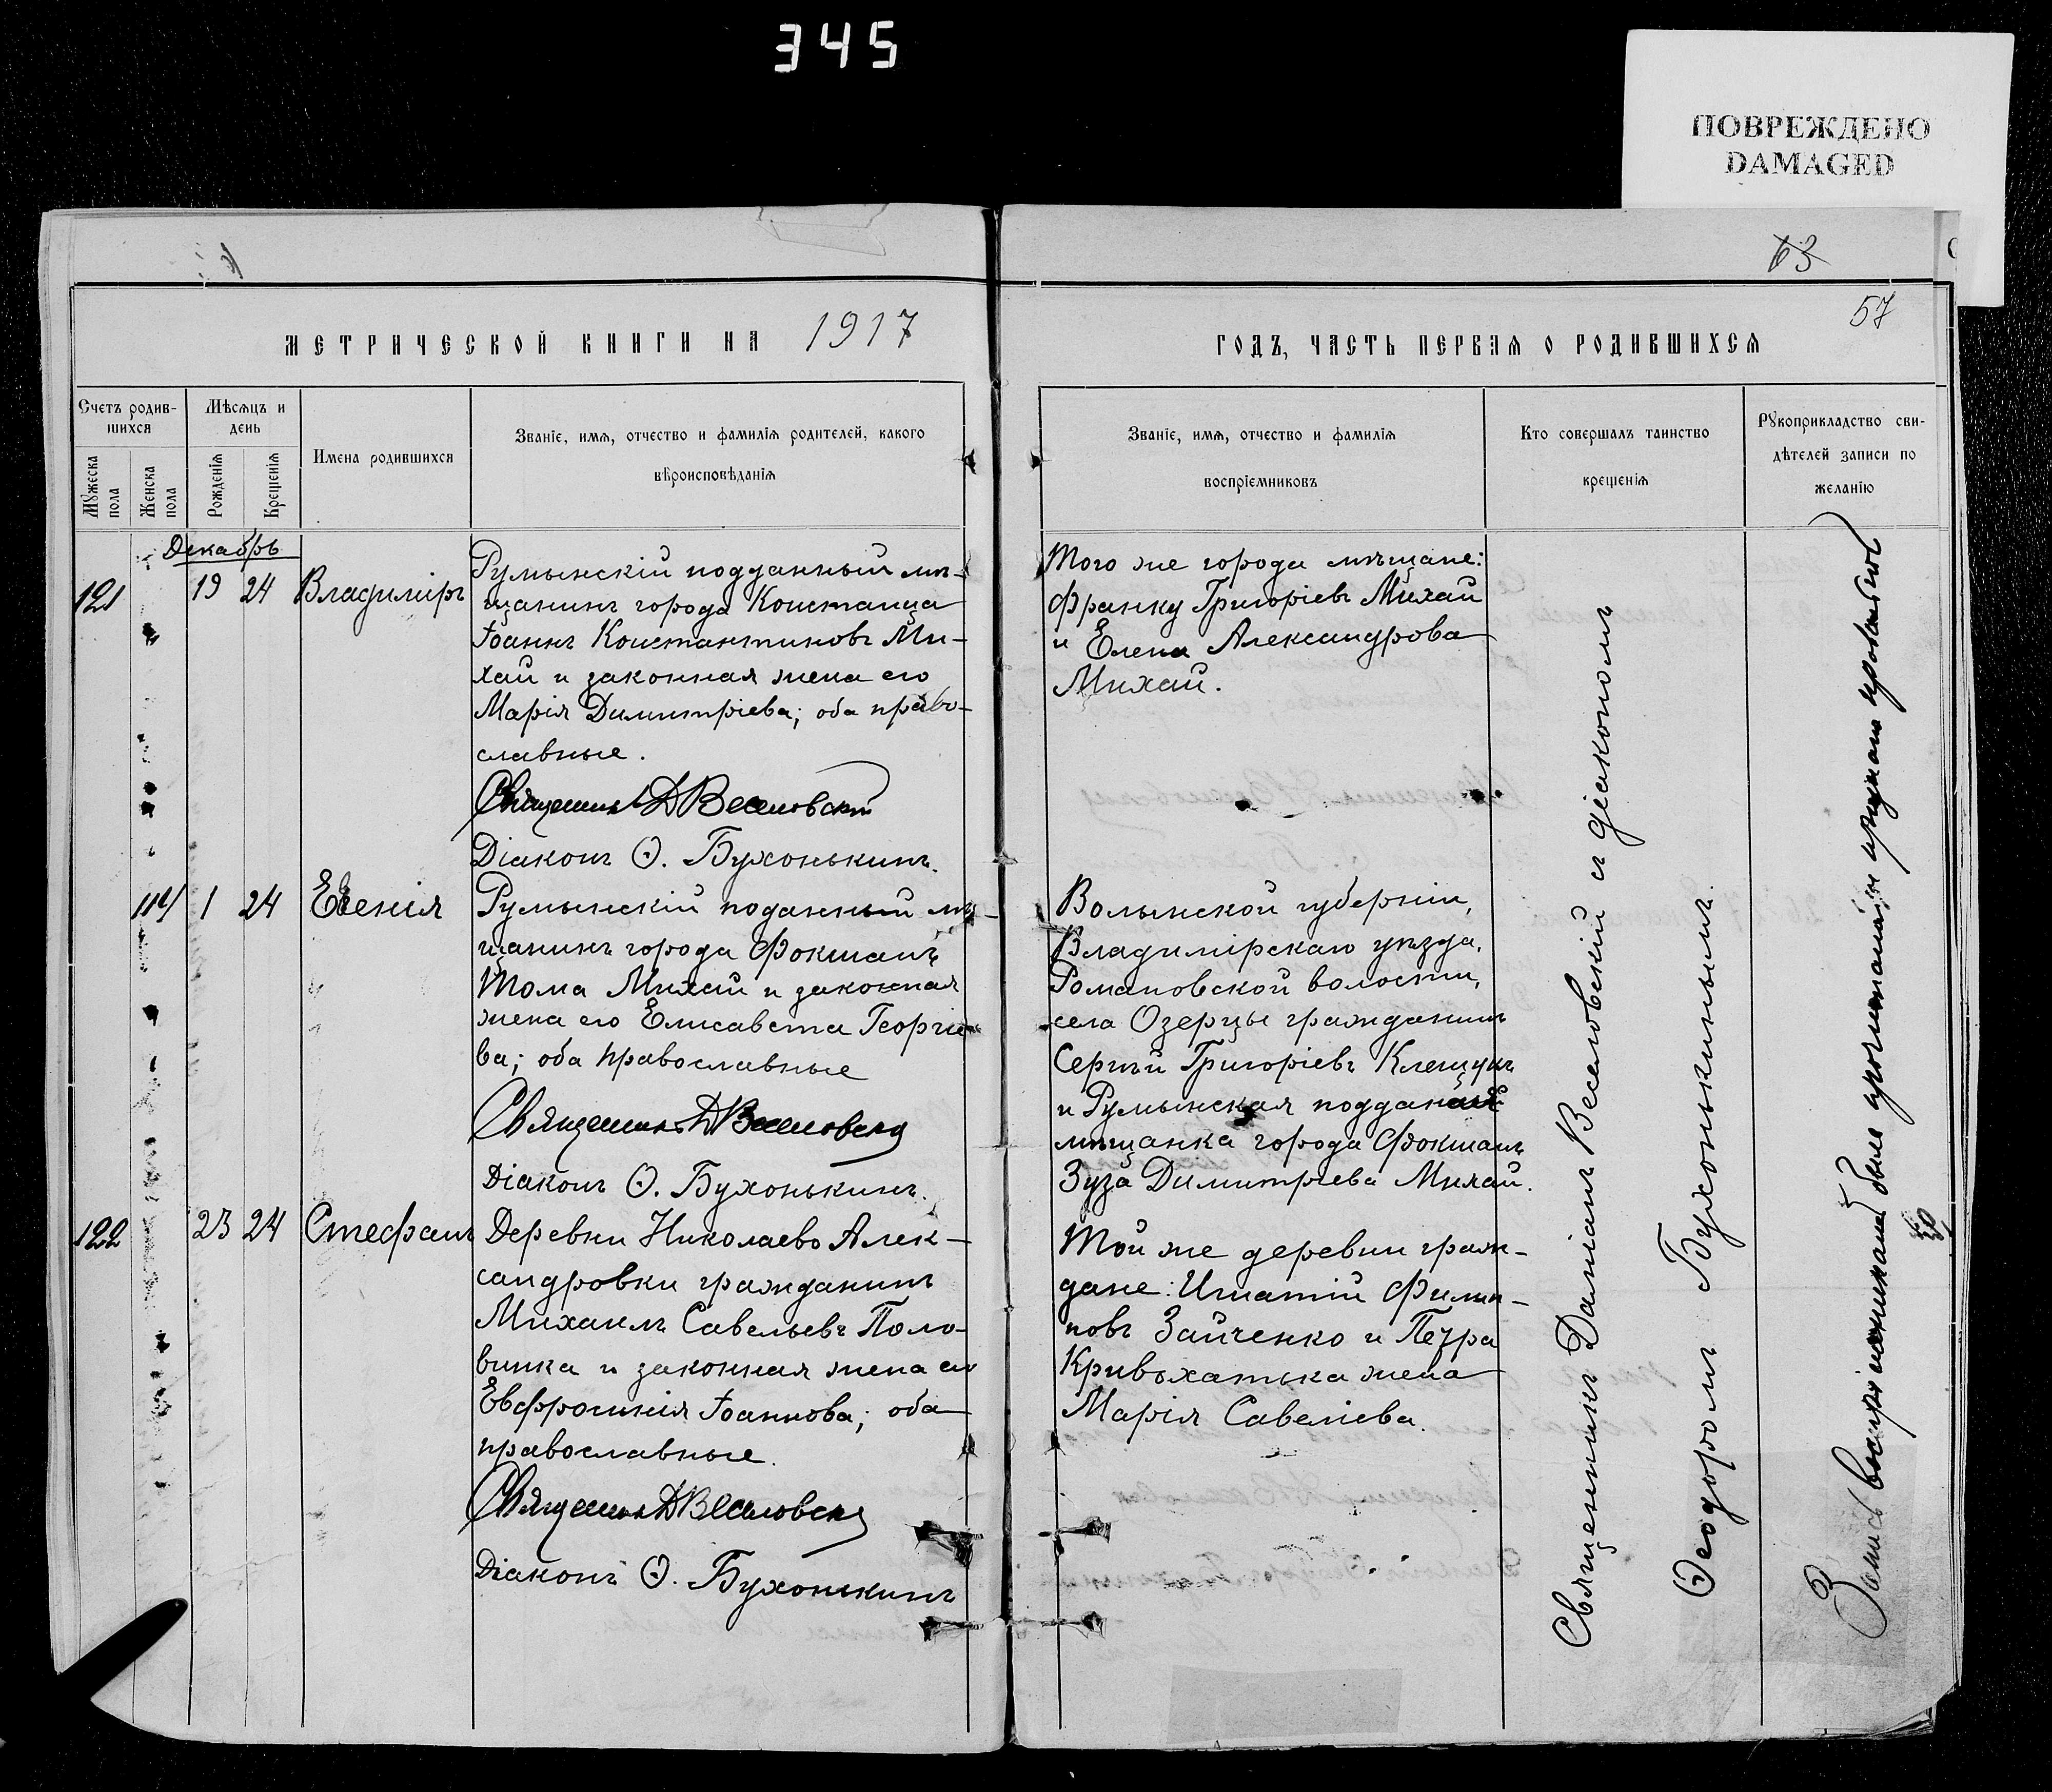 345
ПОВРЕЖДЕНО
DAMAGED
63
57
МЕТРИЧЕСКОЙ КНИГИ НА 1917
ГОДЪ, ЧАСТЬ ПЕРВАЯ О РОДИВШИХСЯ
Счетъ родив-
шихся
Мужеска
пола
Женска
пола
Мѣсяцъ и
день
Рожденія
Крещенія
Имена родившихся
Званіе, имя, отчество и фамилія родителей, какого
вѣроисповѣданія
Званіе, имя, отчество и фамилія
воспріемниковъ
Кто совершалъ таинство
крещенія
Рукоприкладство сви-
дѣтелей записи по
желанію
Декабрь
121 19 24 Владиміръ
Румынскій подданный мѣ-
щанинъ города Констанца
Іоаннъ Константиновъ Ми-
хай и законная жена его
Марія Димитріева; оба право-
славные.
Священникъ Д Веселовскій
Діаконъ Ѳ. Бухонькинъ.
Того же города мѣщане:
Франку Григоріевъ Михай
и Елена Александрова
Михай.
114 1 24 Евгенія
Румынскій поданный мѣ-
щанинъ города Фокшанъ
Тома Михай и законная
жена его Елисавета Георгіе-
ва; оба православные
Священникъ Д Веселовскій
Діаконъ Ѳ. Бухонькинъ.
Волынской губерніи,
Владимірскаго уѣзда,
Романовской волости,
села Озерцы гражданинъ
Сергѣй Григоріевъ Клещукъ
и Румынская подданая
мѣщанка города Фокшанъ
Зуза Димитріева Михай.
122 23 24 Стефанъ
Деревни Николаево Алек-
сандровки гражданинъ
Михаилъ Савельевъ Поло-
винка и законная жена его
Евфросинія Іоаннова; оба
православные.
Священникъ Д Веселовскій
Діаконъ Ѳ. Бухонькинъ
Той же деревни граж-
дане: Игнатій Филип-
повъ Зайченко и Петра
Кривохатька жена
Марія Савеліева.
Священникъ Даніилъ Веселовскій съ діакономъ
Ѳеодоромъ Бухонькинымъ.
Запись